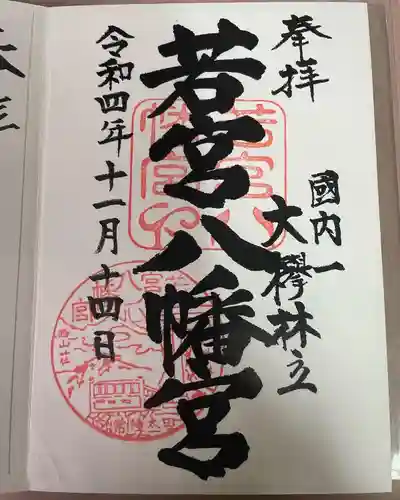 奉拝
國内一
大欅林立
若宮八幡宮
令和四年十一月十四日
若宮八幡宮